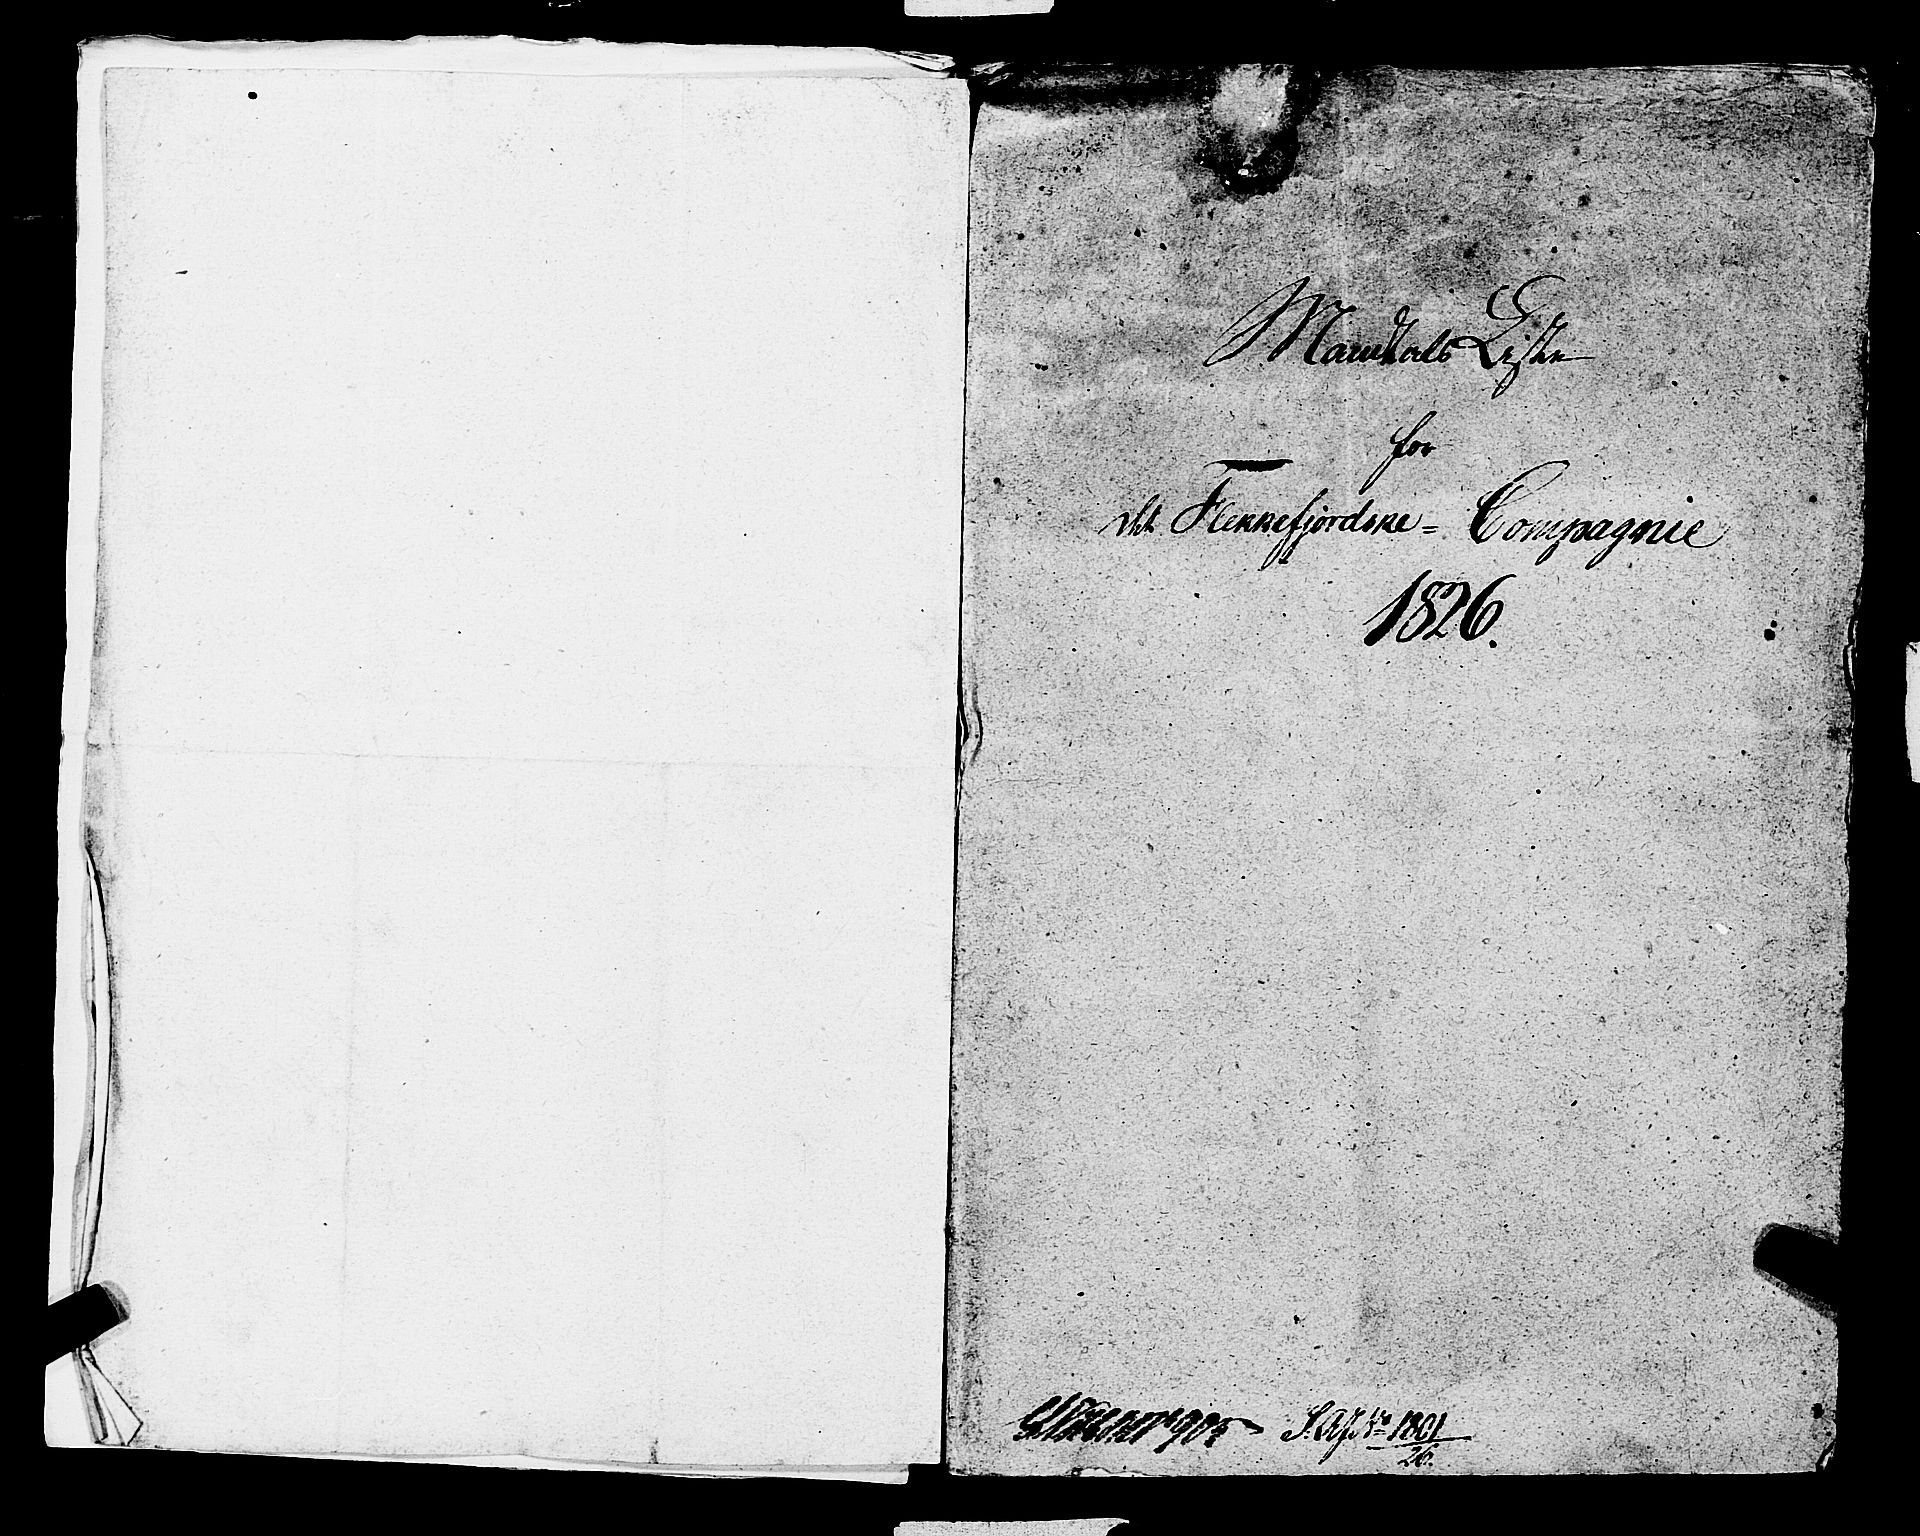 Mandtals Liste
for
det Flekkefjordske= Compagnie
1826.
1801
26.